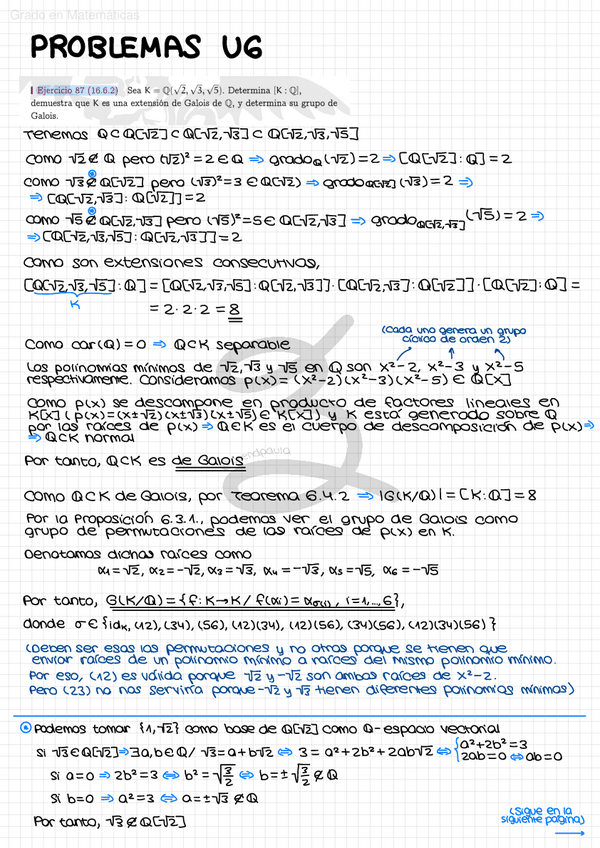 Grado en Matemáticas
PROBLEMAS U6
Ejercicio 87 (16.6.2) Sea K = ℚ(√2, √3, √5). Determina [K : ℚ],
demuestra que K es una extensión de Galois de ℚ, y determina su grupo de
Galois.
Tenemos ℚ ⊂ ℚ[√2] ⊂ ℚ[√2,√3] ⊂ ℚ[√2,√3,√5]
Como √2 ∉ ℚ pero (√2)² = 2 ∈ ℚ ⇒ grado_ℚ(√2) = 2 ⇒ [ℚ[√2] : ℚ] = 2
Como √3 ∉ ℚ[√2] pero (√3)² = 3 ∈ ℚ[√2) ⇒ grado_ℚ[√2] (√3) = 2 ⇒
⇒ [ℚ[√2,√3] : ℚ[√2]] = 2
Como √5 ∉ ℚ[√2,√3] pero (√5)² = 5 ∈ ℚ[√2,√3] ⇒ grado_ℚ[√2,√3] (√5) = 2 ⇒
⇒ [ℚ[√2,√3,√5] : ℚ[√2,√3]] = 2
Como son extensiones consecutivas,
[ℚ[√2,√3,√5] : ℚ] = [ℚ[√2,√3,√5] : ℚ[√2,√3]] · [ℚ[√2,√3] : ℚ[√2]] · [ℚ[√2] : ℚ] =
K
= 2 · 2 · 2 = 8
(Cada uno genera un grupo
cíclico de orden 2)
Como car(ℚ) = 0 ⇒ ℚ⊂K separable
Los polinomios mínimos de √2, √3 y √5 en ℚ son x²-2, x²-3 y x²-5
respectivamente. Consideramos p(x) = (x²-2)(x²-3)(x²-5) ∈ ℚ[x]
Como p(x) se descompone en producto de factores lineales en
K[x] (p(x) = (x±√2)(x±√3)(x±√5) ∈ K[x]) y K está generado sobre ℚ
por las raíces de p(x) ⇒ ℚ∈K es el cuerpo de descomposición de p(x) ⇒
⇒ ℚ⊂K normal
Por tanto, ℚ⊂K es de Galois
Como ℚ⊂K de Galois, por Teorema 6.4.2 ⇒ |G(K/ℚ)| = [K:ℚ] = 8
Por la Proposición 6.3.1., podemos ver el grupo de Galois como
grupo de permutaciones de las raíces de p(x) en K.
Denotamos dichas raíces como
α₁ = √2, α₂ = -√2, α₃ = √3, α₄ = -√3, α₅ = √5, α₆ = -√5
Por tanto, G(K/ℚ) = {f: K→K / f(αᵢ) = α_σ(i), i=1,...,6},
donde σ ∈ {id_K, (12), (34), (56), (12)(34), (12)(56), (34)(56), (12)(34)(56)}
(Deben ser esas las permutaciones y no otras porque se tienen que
enviar raíces de un polinomio mínimo a raíces del mismo polinomio mínimo.
Por eso, (12) es válida porque √2 y -√2 son ambas raíces de x²-2.
Pero (23) no nos serviría porque -√2 y √3 tienen diferentes polinomios mínimos)
Podemos tomar {1,√2} como base de ℚ[√2] como ℚ-espacio vectorial
Si √3 ∈ ℚ[√2] ⇒ ∃a,b ∈ ℚ / √3 = a+b√2 ⇔ 3 = a²+2b²+2ab√2 ⇔ { a²+2b² = 3
2ab = 0 ⇔ ab = 0
Si a = 0 ⇒ 2b² = 3 ⇔ b² = √(3/2) ⇔ b = ±√(3/2) ∉ ℚ
Si b = 0 ⇒ a² = 3 ⇔ a = ±√3 ∉ ℚ
Por tanto, √3 ∉ ℚ[√2]
(Sigue en la
siguiente página)